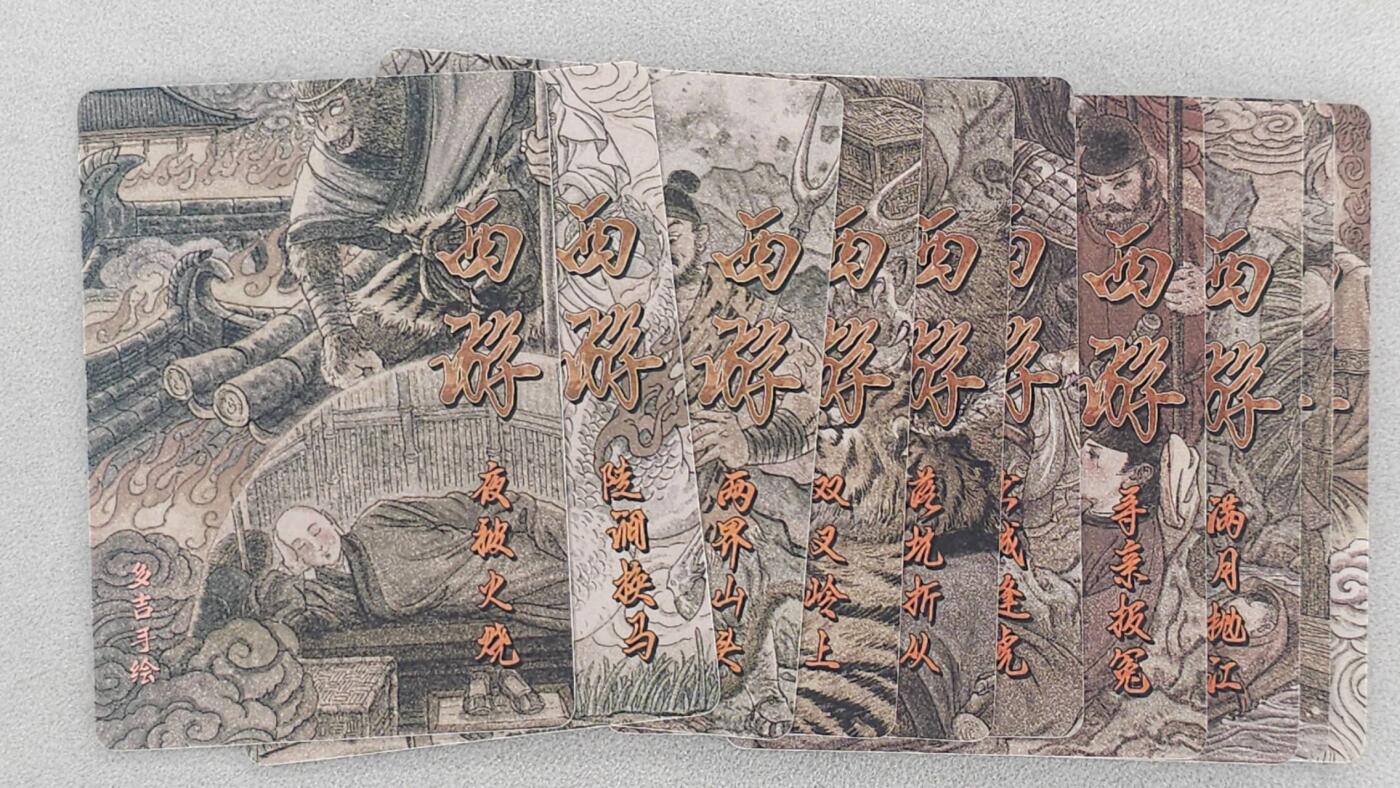 西游
夜被火烧
多吉手绘
西游
陡涧换马
西游
两界山头
西游
双叉岭上
西游
落坑折从
西游
出城逢虎
西游
寻亲报冤
西游
满月抛江